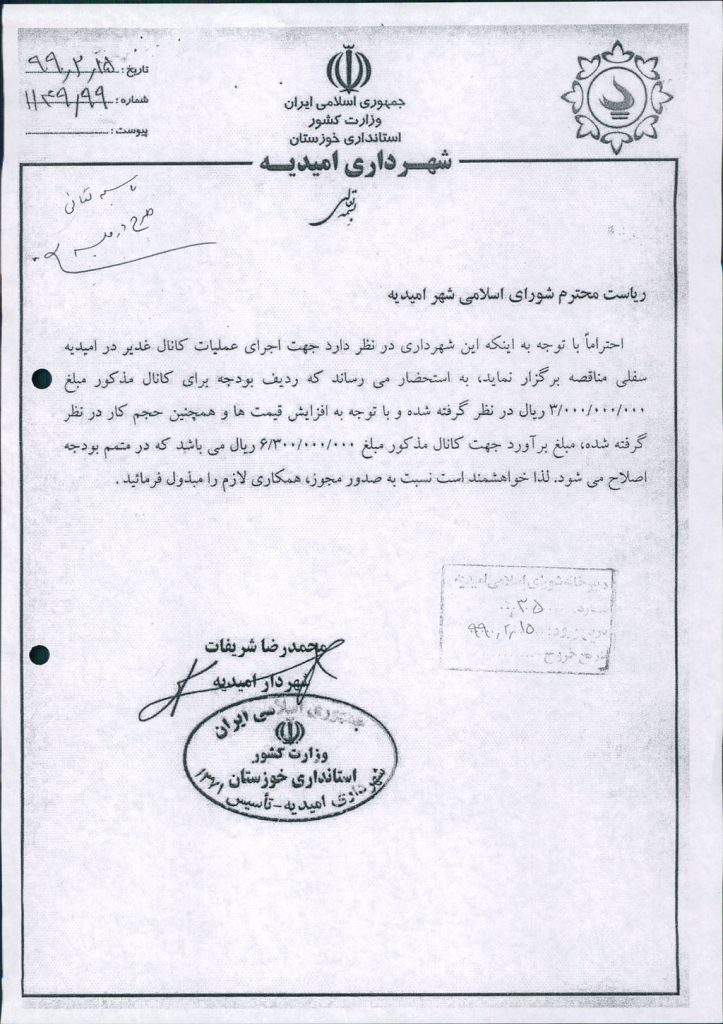 جمهوری اسلامی ایران
وزارت کشور
استانداری خوزستان
شهرداری امیدیه
بسمه تعالی
تاریخ : ۹۹٫۲٫۱۵
شماره : ۱۱۴۹٫۹۹
پیوست :
طرح در
ریاست محترم شورای اسلامی شهر امیدیه
احتراماً با توجه به اینکه این شهرداری در نظر دارد جهت اجرای عملیات کانال غدیر در امیدیه
سفلی مناقصه برگزار نماید، به استحضار می رساند که ردیف بودجه برای کانال مذکور مبلغ
۳/۰۰۰/۰۰۰/۰۰۰ ریال در نظر گرفته شده و با توجه به افزایش قیمت ها و همچنین حجم کار در نظر
گرفته شده، مبلغ برآورد جهت کانال مذکور مبلغ ۶/۳۰۰/۰۰۰/۰۰۰ ریال می باشد که در متمم بودجه
اصلاح می شود. لذا خواهشمند است نسبت به صدور مجوز، همکاری لازم را مبذول فرمائید .
دبیرخانه شورای اسلامی امیدیه
۳۵
تاریخ ورود: ۹۹٫۲٫۱۵
تاریخ خروج
محمدرضا شریفات
شهردار امیدیه
جمهوری اسلامی ایران
وزارت کشور
استانداری خوزستان
شهرداری امیدیه - تأسیس ۱۳۷۱